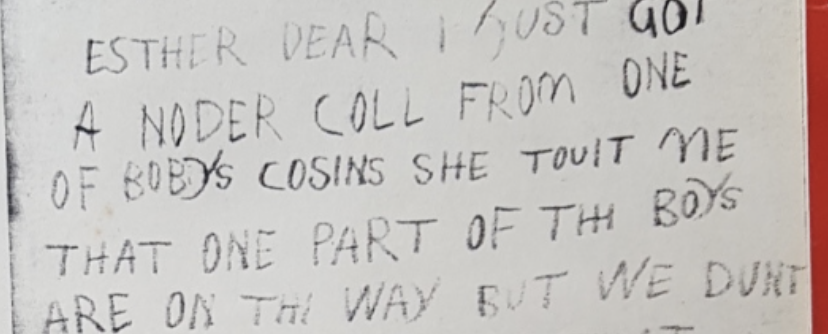 ESTHER DEAR I JUST GOT
A NODER COLL FROM ONE
OF BOBYS COSINS SHE TOUIT ME
THAT ONE PART OF THI BOYS
ARE ON THI WAY BUT WE DUNT